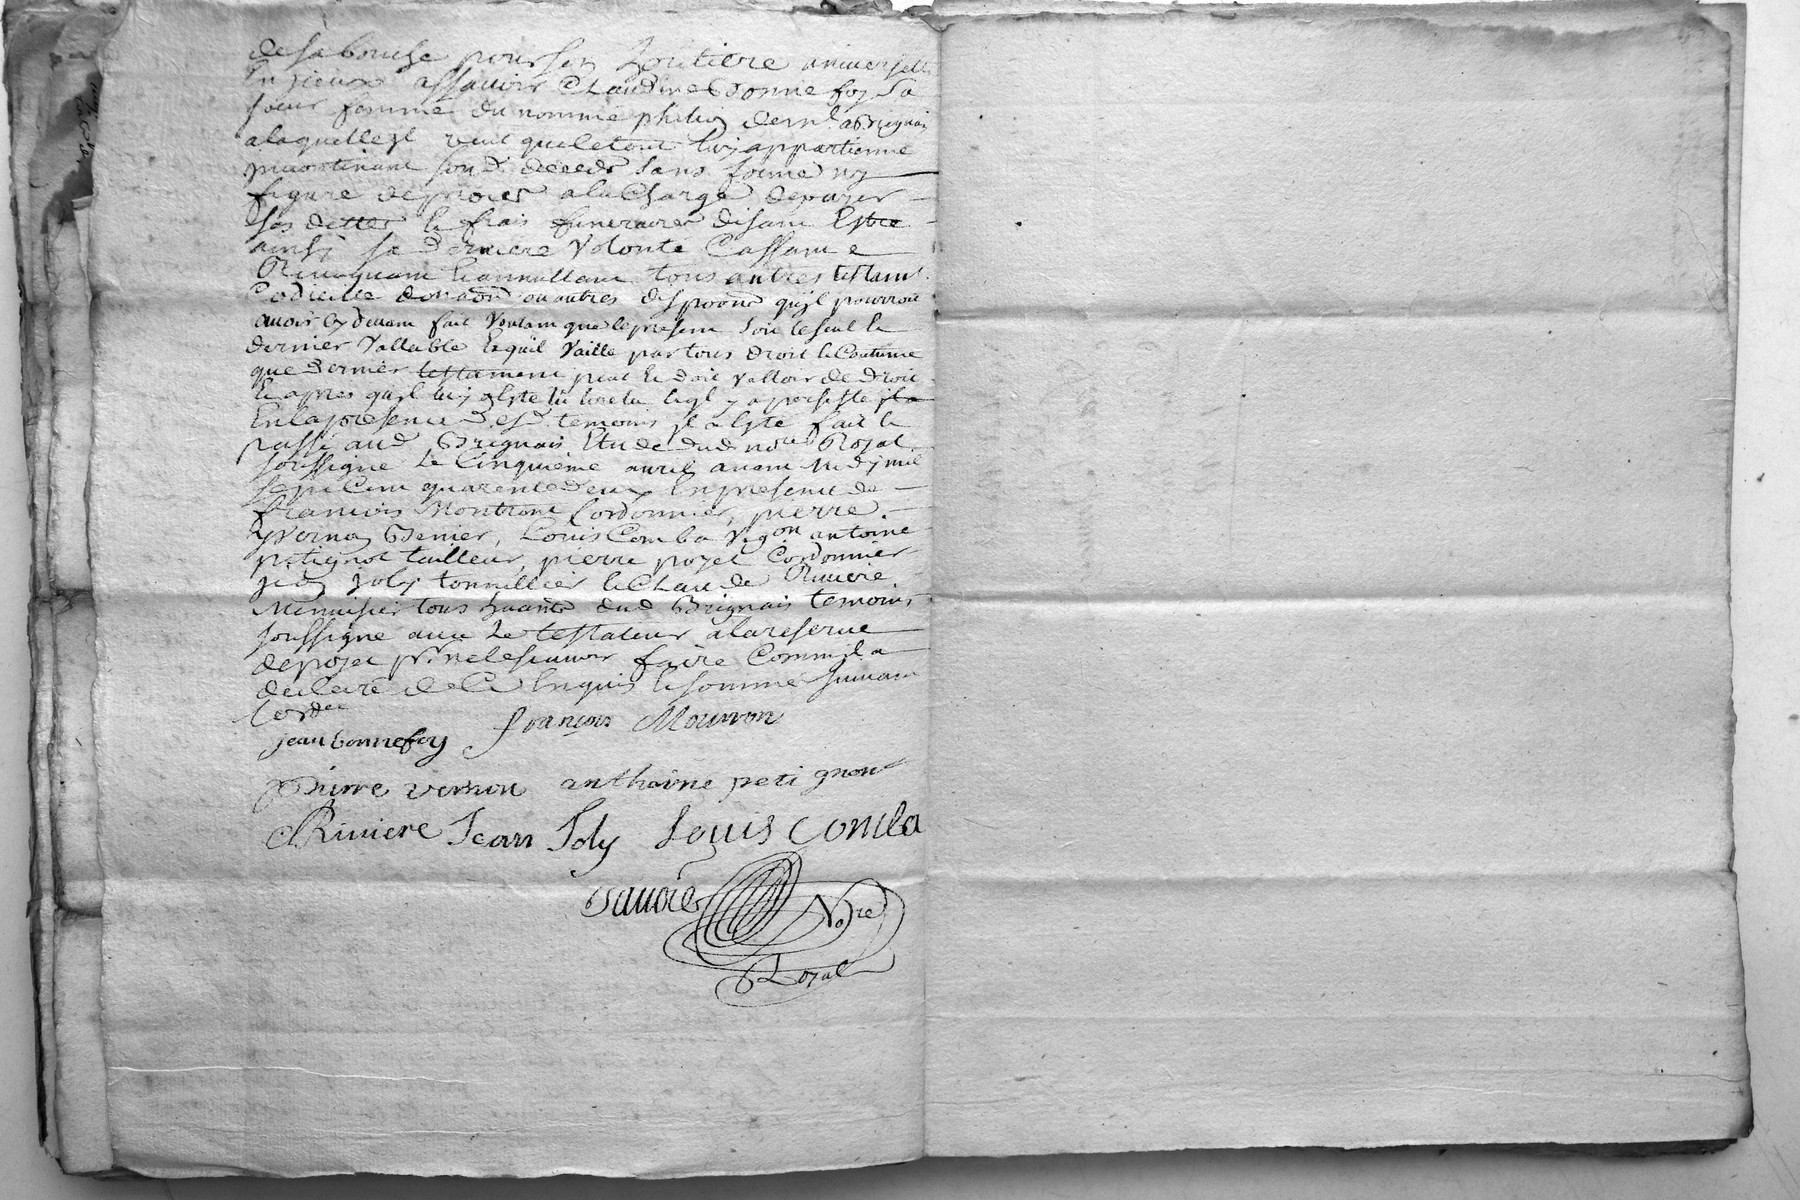 de sa bouche pour son heritiere universelle
assavoir Claudine Bonnefoy sa
soeur femme du nommé philis dem.t a Brignais
a laquelle il veut que le tout luy appartienne
incontinant son d. deceds sans forme ny
figure de proces a la charge de payer
ses dettes le frais funeraires disant Estre
ainsy sa derniere volonté Cassant e
Revoquant Et annullant tous autres testam.t
Codicille donaon ou autres dispoons quil pourroit
avoir cy devant fait voulant que le present soit le seul Et
dernier vallable Et quil vaille par tous droit Et Coutume
que dernier testament peut Et doit valloir de droit
Et apres quil luy a Este lu Et relu Et quil y a persisté
En la presence d. temoins il a Este fait Et
passé aud Brignais Etude dud no.re Royal
soussigné Le Cinquieme avril avant midy mil
sept Cent quarente deux En presence de
francois Montront Cordonnier, pierre
Vernon, Louis Comba Vigon antoine
petignot tailleur, pierre poyet Cordonnier
jean joly tonnillier Et Claude Riviere
Menuisier tous huants dud Brignais temoins
soussigné avec Le testateur a la reserve
de poyet p.r ne le scavoir faire Comm il a
declaré de Ce Enquis Et sommé suivant
Lord.ce
jean bonnefoy françois Mourron
pierre vernon anthoine peti gnon
CRiviere Jean Joly Louis Comba
No.re
Royal